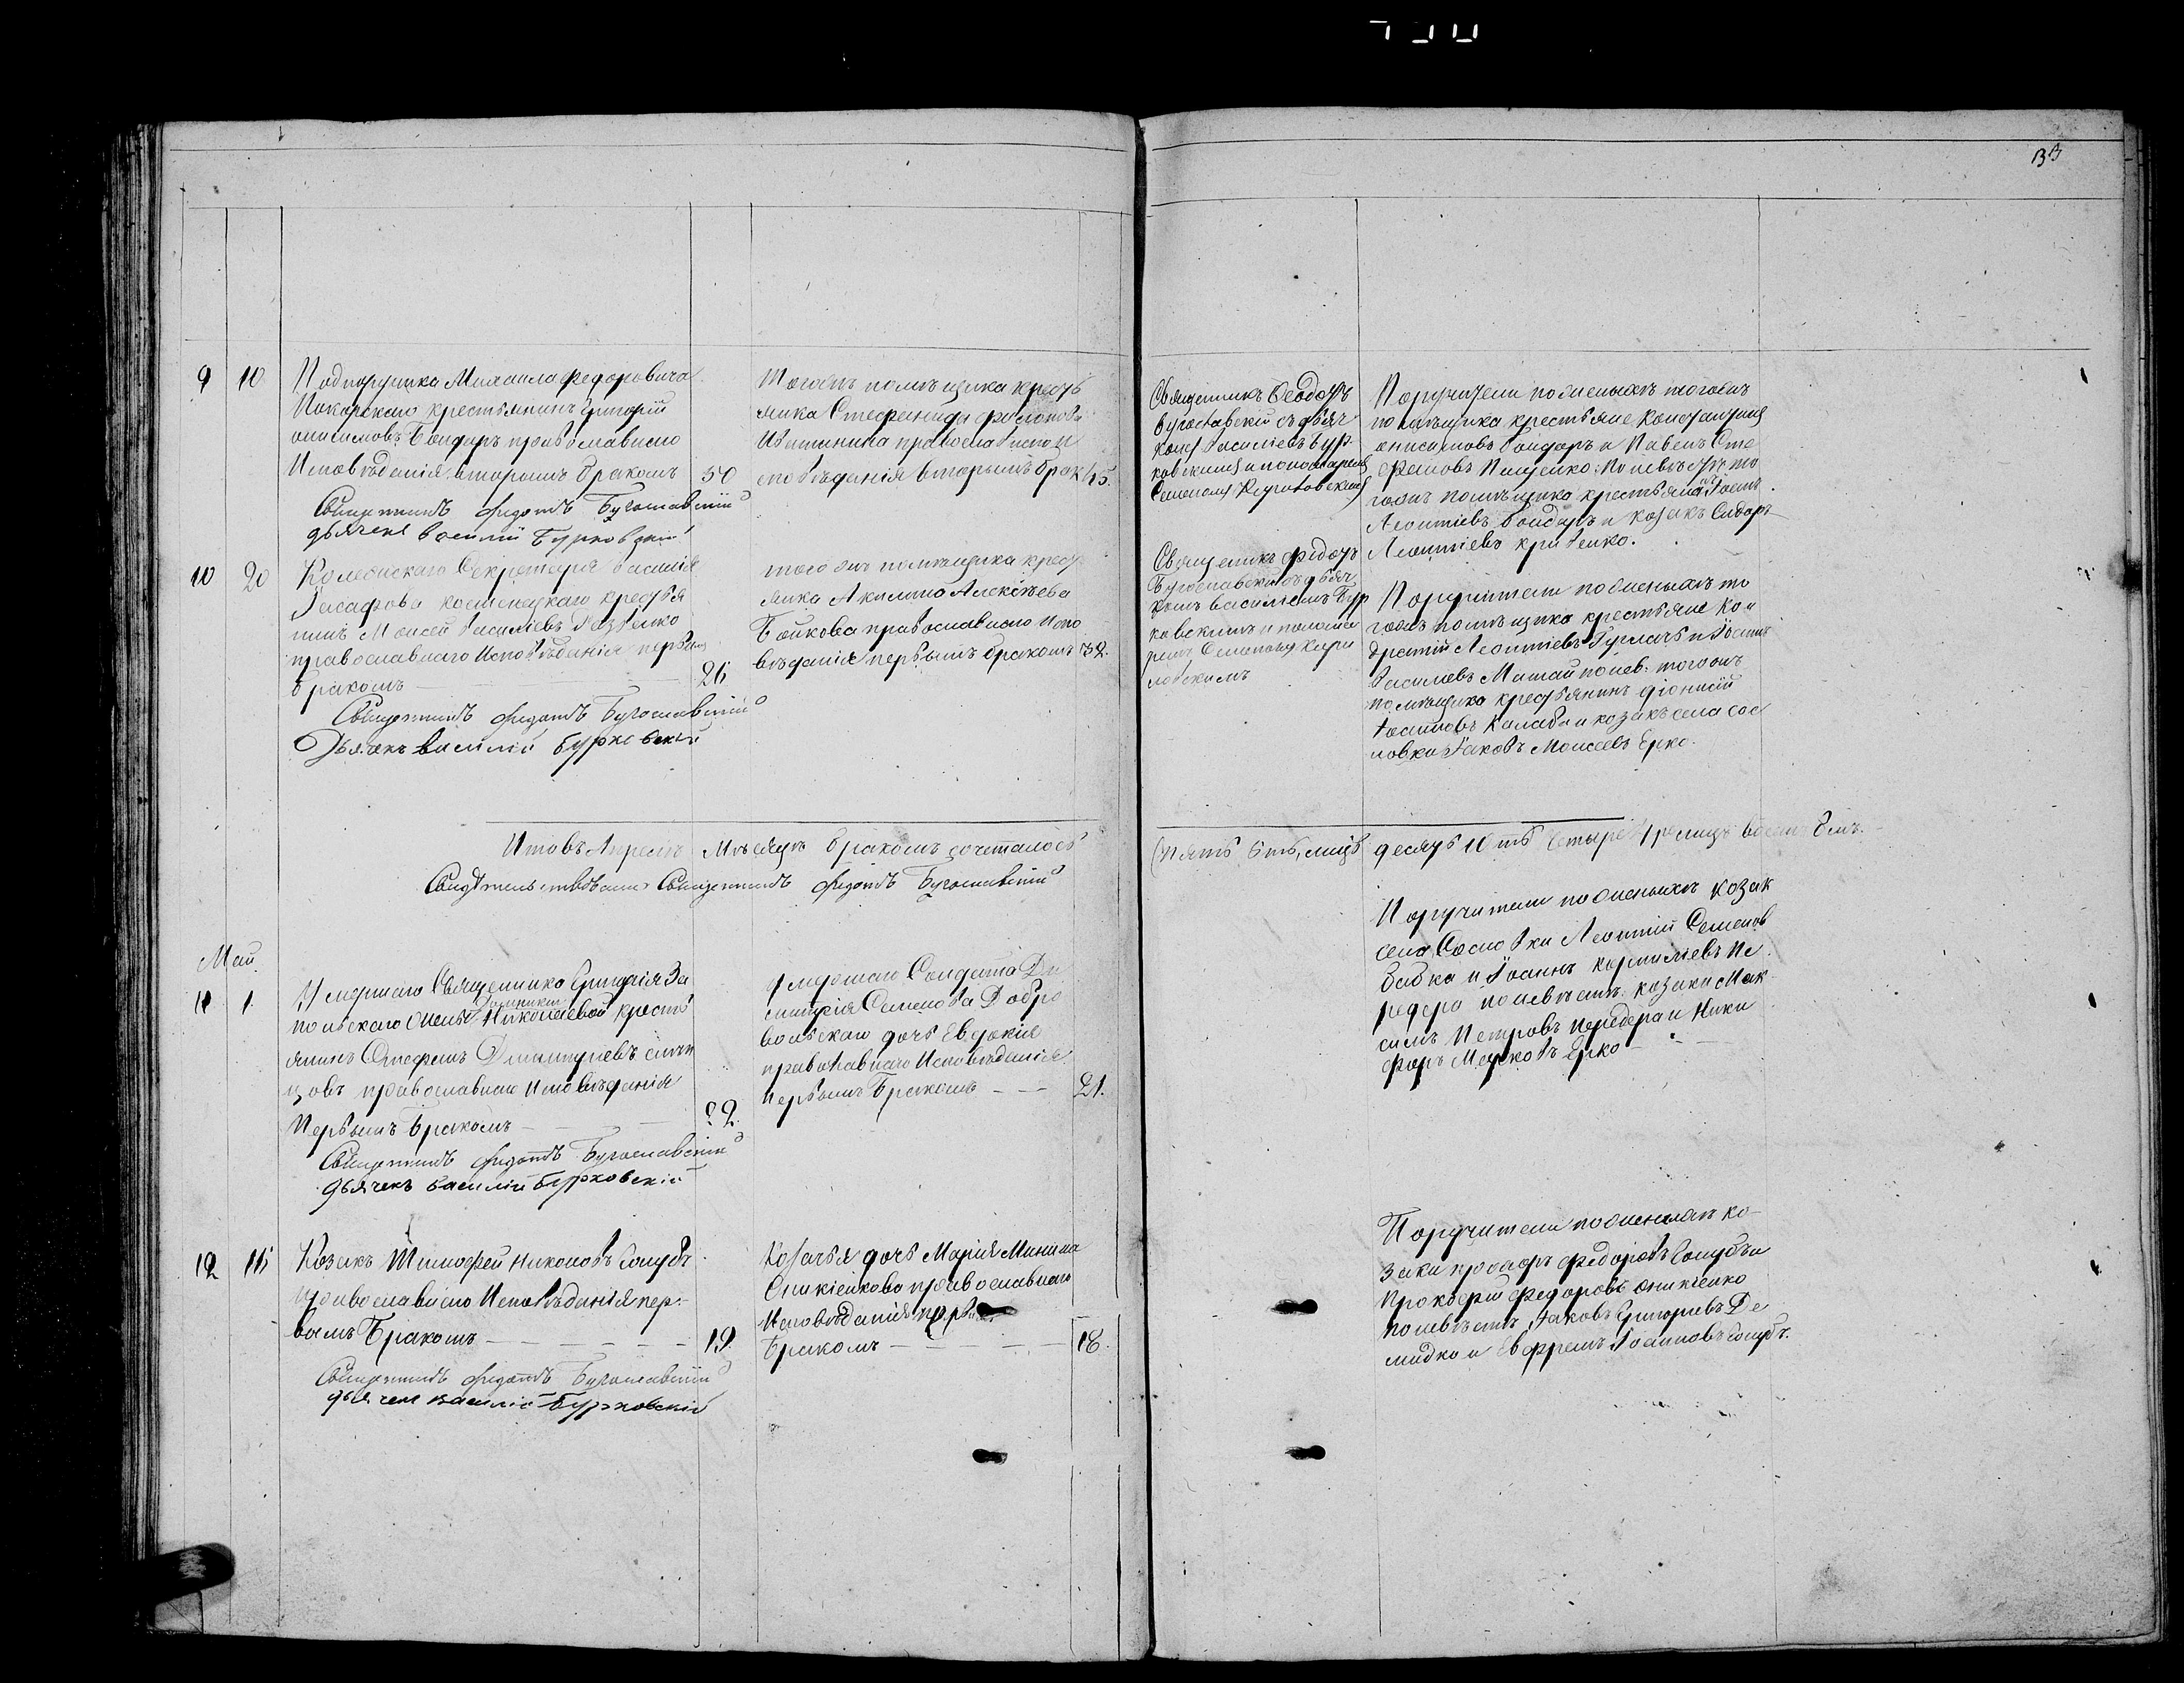 33
9 10
Подпорущика Михаила Федоровича
Покорскаго крестьянинъ Григорій
онисимовъ Бондарь православнаго
Исповѣданія вторымъ бракомъ 50
Священникъ Федотъ Бугославскій
дьячекъ Василій Бурковскій
тогожъ помѣщика кресть
янка Стефанида
православнаго И
сповѣданія вторымъ брак 45.
Священникъ Феодотъ
Бугославскій съ дьяч
комъ Василіевъ Бур
ковскимъ и пономаремъ
Семеномъ Кириловскимъ
Поручители по женихѣ тогожъ
помѣщика крестьяне Константинъ
онисимовъ Бондарь и Павелъ Сте
фановъ Пищенко: По невѣстѣ то
гожъ помѣщика крестьяне Іосифъ
Леонтіевъ Бондарь и козакъ Сидоръ
Леонтіевъ Кривенко.
10 20
Колежскаго Секретаря Василія
Іасафова Костенецкаго крестья
нинъ Моисей Василіевъ
православнаго Исповѣданія первымъ
бракомъ 26
Священникъ Федотъ Бугославскій
Дьячекъ Василій Бурковскій
того жъ помѣщика кресть
янка Акилина Алексѣева
Бойкова православнаго Испо
вѣданія первымъ бракомъ 32.
Священикъ Федотъ
Бугославскій съ дьяч
комъ Василіемъ Бур
ковскимъ и понома
ремъ Семеномъ Кири
ловскимъ
Поручители по женихѣ то
гожъ помѣщика крестьяне Кон
дратій Леонтіевъ и Іоаннъ
Василіевъ по нев: тогожъ
помѣщика крестьянинъ Діонисій
Іоанновъ Калаба и козакъ села Сос
новки Іаковъ Моисеевъ Ерко.
Итовъ Апрелѣ Мѣсяцѣ бракомъ сочеталось
Пять 5ть, лицъ десять 10ть
Свидѣтельствовалъ Священникъ Федотъ Бугославскій
Май.
11 1
Умершаго Священника Григорія За
польскаго жены Домникіи Николаевой кресть
янинъ Стефанъ Димитріевъ
православнаго Исповѣданія
Первымъ бракомъ 22.
Священникъ Федотъ Бугославскій
дьячекъ Василій Бурковскій
Умершаго Солдата Ди
митрія Семенова Добро
вольскаго дочь Евдокія
православнаго Исповѣданія
Первымъ Бракомъ 21.
Поручители по женихѣ козак
села Сосновки Леонтій Семенов
Бабка и Іоаннъ Корниліевъ Пе
редера по невѣстѣ: козаки Мак
симъ Петровъ Передера и Ники
форъ Марковъ Ерко
12 15
Козакъ Тимофей Никоновъ Голубъ
православнаго Исповѣданія пер-
вымъ Бракомъ 19.
Священникъ Федотъ Бугославскій
дьячекъ Василій Бурковскій
Козачья дочь Марія Минина
Оникіенкова православнаго
Исповѣданія первы
бракомъ 18.
Поручители по женихѣ ко-
заки Федоровъ Голубъ и
Прокофій Федоровъ Оникіенко
по невѣстѣ, Іаковъ Григоріевъ Де
мидко и Евфремъ Іоанновъ Голубъ.